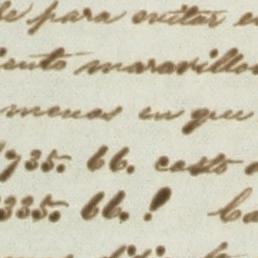 de para evitar e
iento maravillos
menos en que
1735. 66. costo
335. 66.! Ca